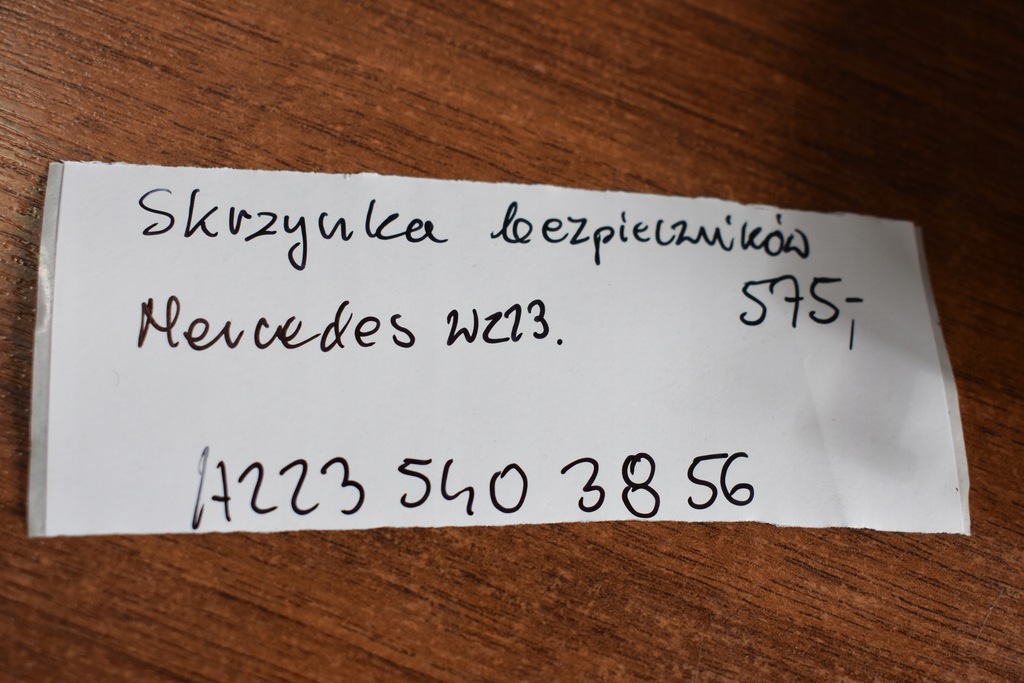 Skrzynka bezpieczników
Mercedes W223.
575,-
A223 540 38 56